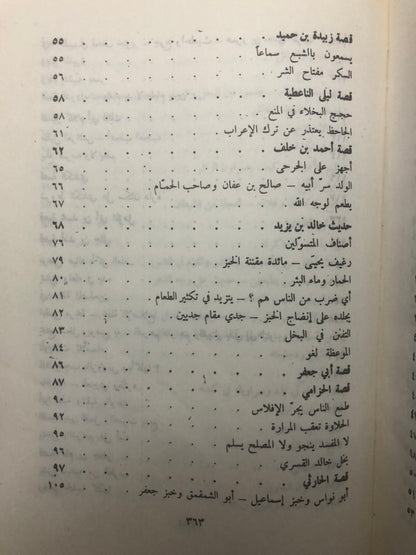 قصة زبيدة بن حميد . . . . . . . ٥٥
يسمعون بالشبع سماعاً . . . . . . . ٥٥
السكر مفتاح الشر . . . . . . . ٥٦
قصة ليلى الناعطية . . . . . . . ٥٨
حجج البخلاء في المنع . . . . . . . ٥٨
الجاحظ يعتذر عن ترك الإعراب . . . . . . . ٦١
قصة أحمد بن خلف . . . . . . . ٦٢
أجهز على الجرحى . . . . . . . ٦٥
الولد سر أبيه – صالح بن عفان وصاحب الحمام . . . ٦٦
يطعم لوجه الله . . . . . . . ٦٧
حديث خالد بن يزيد . . . . . . . ٦٨
أصناف المتسولين . . . . . . . ٧٦
رغيف يحيى – مائدة مقننة الخبز . . . . . . ٧٩
الحمار وماء البئر . . . . . . . ٨٠
أي ضرب من الناس هم ؟ – يتزيد في تكثير الطعام . . ٨١
يجلده على إنضاج الخبز – جدي مقام جديين . . . ٨٢
التفنن في البخل . . . . . . . ٨٣
الموعظة لغو . . . . . . . ٨٤
قصة أبي جعفر . . . . . . . ٨٦
قصة الحزامي . . . . . . . ٨٧
طبع الناس يجرّ الإفلاس . . . . . . . ٩٠
الحلاوة تعقب المرارة . . . . . . . ٩٢
لا المفسد ينجو ولا المصلح يسلم . . . . . . ٩٥
بخل خالد القسري . . . . . . . ٩٦
قصة الحارثي . . . . . . . ٩٧
أبو نواس وخبز إسماعيل – أبو الشمقمق وخبز جعفر . . ١٠٥
٣٦٣